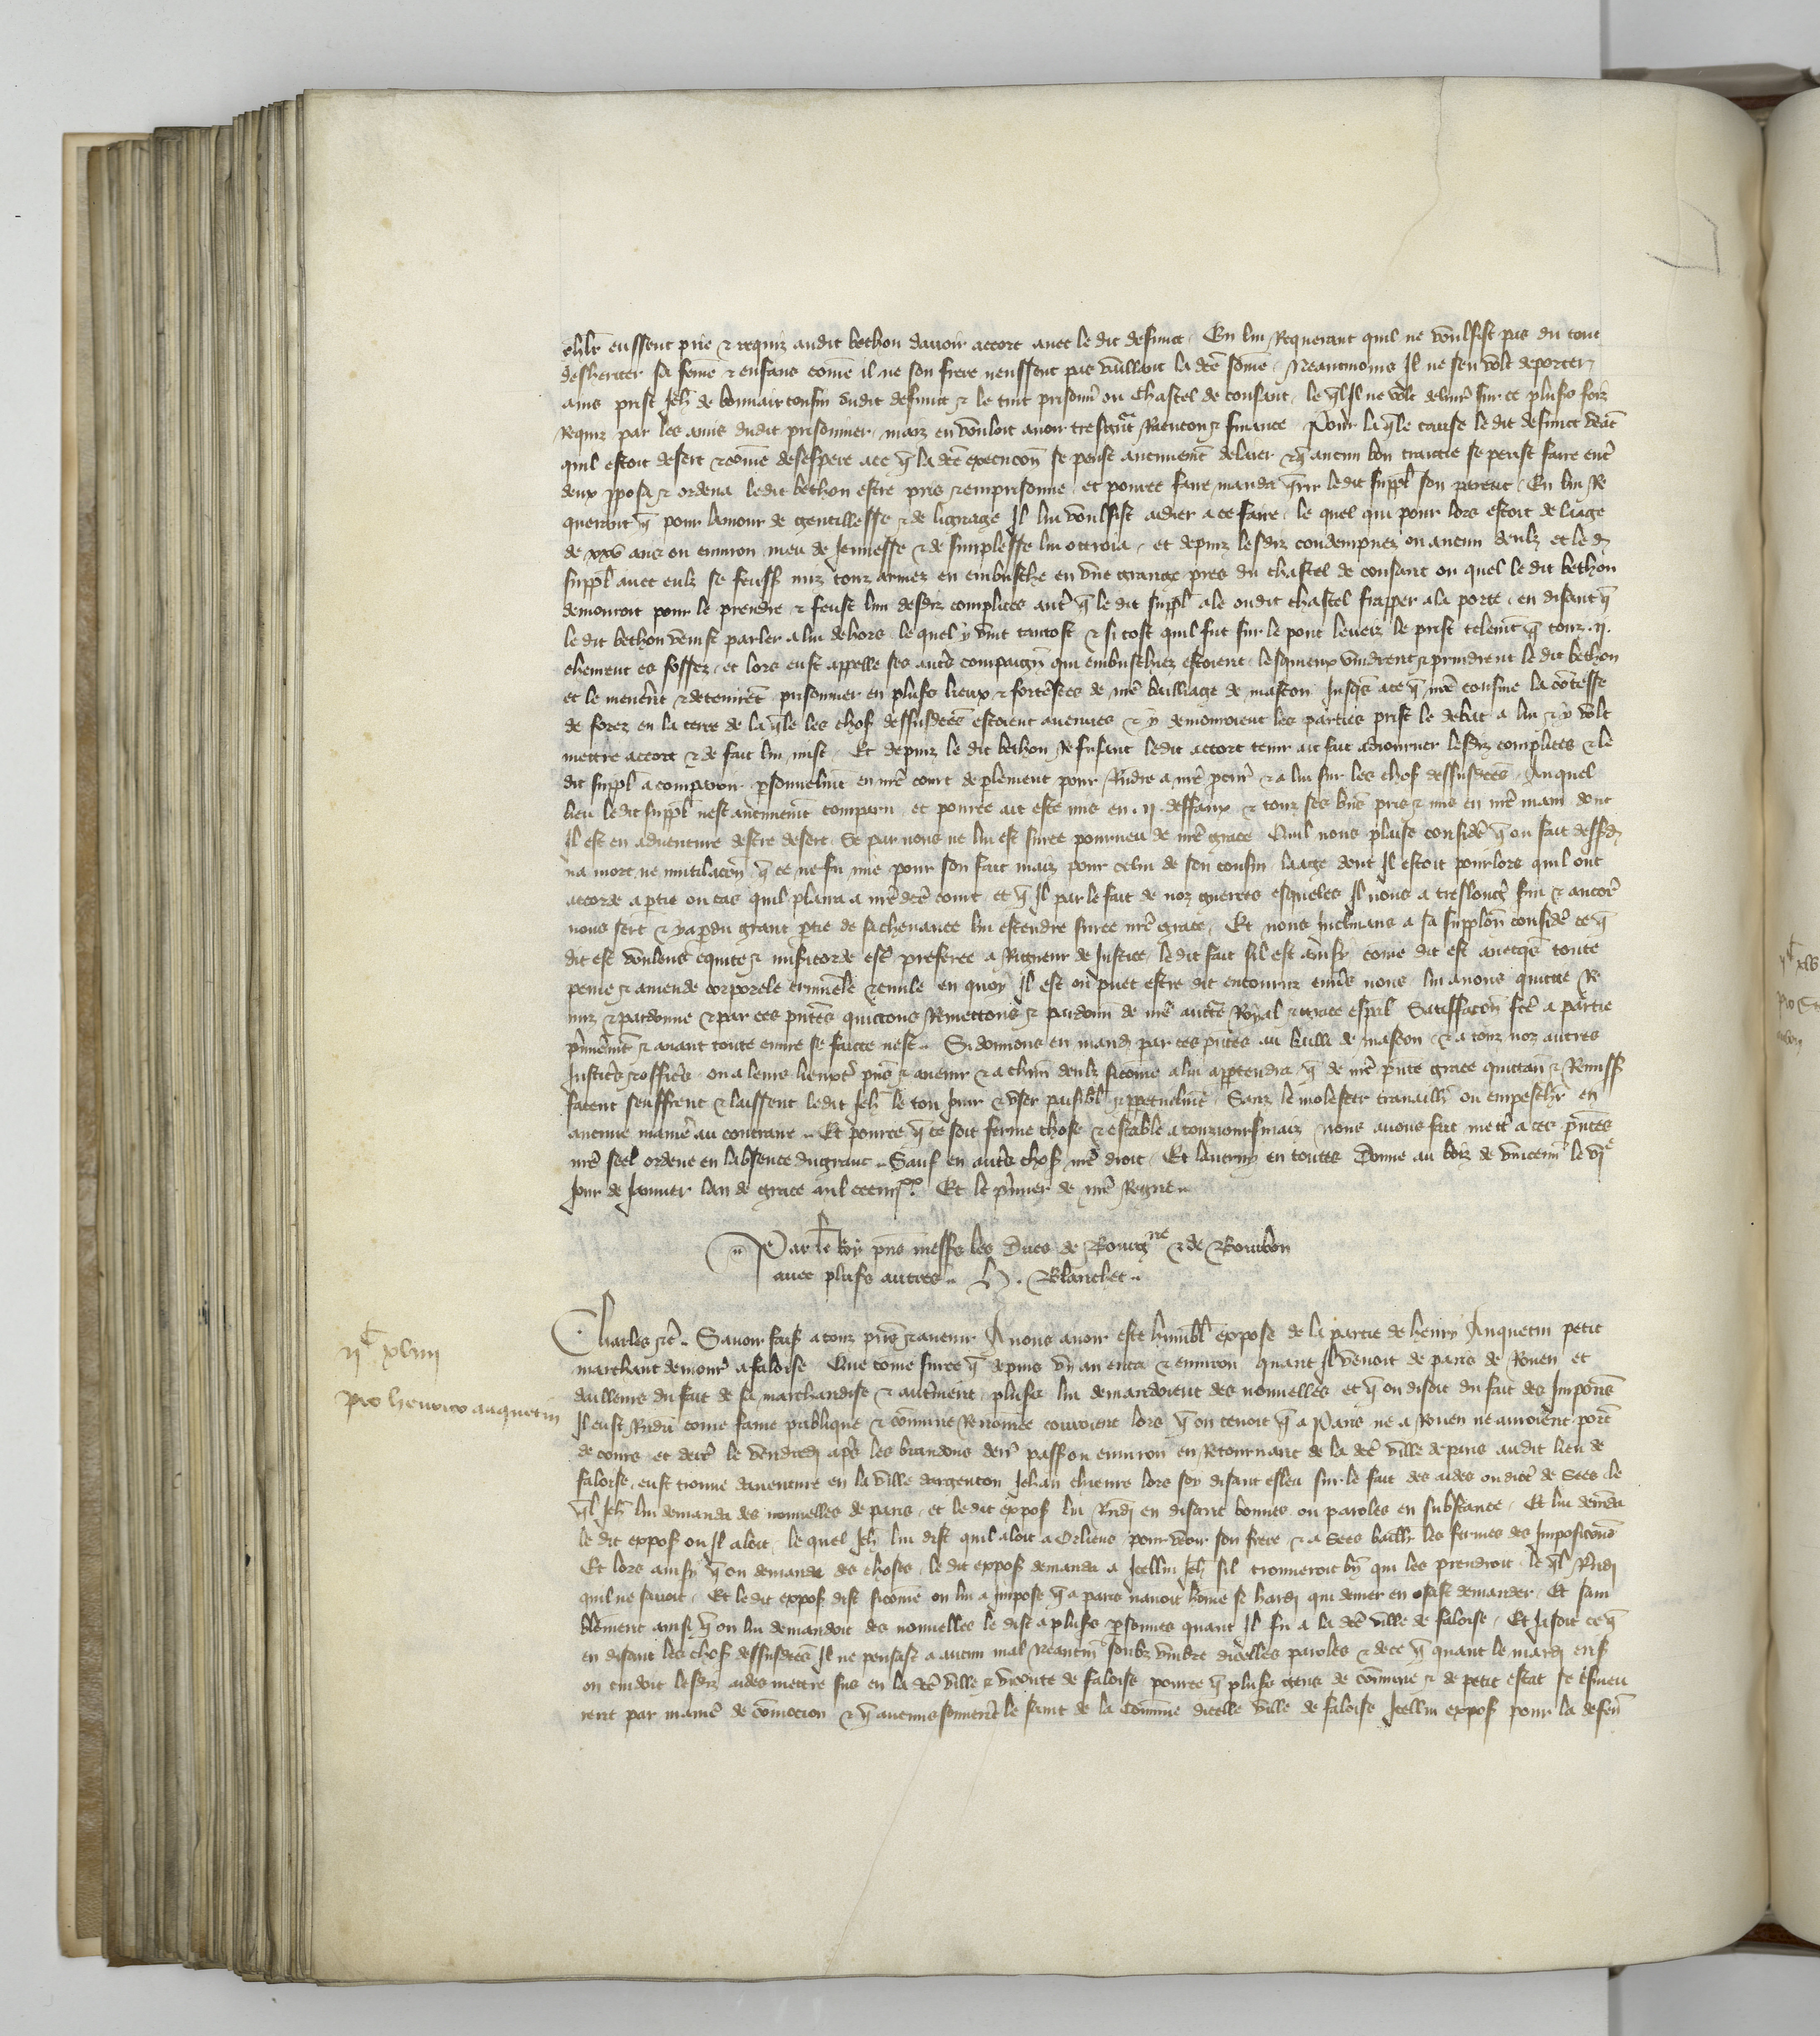 eussent prie & requiz audit bethon davoir accort avec le dit defunct. En lui Requerant quil ne voulsist pas du tout
desheriter sa feme & enfans come il ne son frere neussent pas vaillant la dce some. Neantmoins Il ne sen volt deporter
ains prist Jeh de bonnair cousin dudit defunct & le tint prisonnr ou Chastel de cousant. le ql Il ne volt delivrer sur ce plus foiz
Requiz par les amis dudit prisonnier. maiz en vouloit avoir tresgrat Raencon & finance. Pour la qle cause le dit defunct veat
quil estoit desert & come desespere ace q la dce execucon se peust aucunemt delaier & q aucun bon traictie se peust faire entr
deux pposa & ordena ledit bethon estre pris & emprisonne. et pource faire manda qrir ledit suppl son parent. En lui Re
querant q pour lamour de gentillesse & de lignage Il lui voulsist aidier a ce faire. le quel qui pour lors estoit de laage
de xxv ans ou environ meu de Jeunesse & de simplesse lui ottroia. et depuiz lesdiz condempnez ou aucun deulz et le d
suppl avec eulz se feuss miz touz armez en embusche en une grange pres du chastel de cousant ou quel le dit bethon
demouroit pour le prendre & feust lun desdiz complices autr q le dit suppl ale oudit chastel frapper a la porte. en disant q
le dit bethon venist parler a lui dehors. le quel y vint tantost. & si tost quil fut sur le pont leveiz le prist telemt q touz .ij.
cheirent es fossez. et lors eust appelle ses autrs compaigns qui embuschiez estoient. lesquieux vindrent & prindrent le dit bethon
et le menerent & detenirent prisonnier en plus lieux & forteresces de nre bailliage de mascon. Jusqs ace q nre cousine la contesse
de forez en la terre de la qle les chos dessusdces estoient avenues & y demouroient les parties prist le debat a lui & y volt
mettre accort & de fait lui mist. Et depuiz le dit bethon Refusant ledit accort tenir ait fait adiourner lesdiz complices & le
dit suppl a comparoir personnelmt en nre court de plement pour Rndre a nre pcur & a lui sur les chos dessusdces. Auquel
lieu ledit suppl nest aucunemt comparu. et pource ait este mis en .ij. deffaux & touz ses biens pris & mis en nre main dont
Il est en adventure destre desert. Se par nous ne lui est surce pourveu de nre grace. Quil nous plaise consider q ou fait dessusd
na mort ne mutilacon. q ce ne fu mie pour son fait maiz pour celui de son cousin. laage dont Il estoit pour lors quil ont
accorde a ptie ou cas quil plaira a nre dce court. et q Il par le fait de noz guerres esqueles Il nous a treslongt servi & encor
nous sert & y a pdu grant ptie de sa chevance lui estendre surce nre grace. Et nous Inclinans a sa supplon consider ce q
dit est voulens equite & misericorde estre preferee a Rigueur de Justice. le dit fait sil est ainsy come dit est avecqs toute
peine & amende corporele criminele & civile en quoy Il est ou puet estre dit encourru envs nous lui avons quicte Re
miz & pardonne & par ces pntes quictons Remettons & pardonns de nre auctte Royal & grace espal. Satisffacon fce a partie
premieremt & avant toute euvre se faicte nest. Si donnons en mand par ces pntes au bailli de mascon & a touz noz autres
Justicrs & officrs. ou a leurs lieuxtn pns & avenir & a chun deulz sicome a lui appertendra q de nre pnte grace quittan & Remiss
facent seuffrent & laissent ledit Jeh le ton Jouir & user paisibl & ppetuelmt. Sanz le molester travaillr ou empeschr en
aucune manie au contraire. Et pource q ce soit ferme chose & estable a touzioursmaiz nous avons fait mettr a ces pntes
nre seel ordene en labsence dugrant. Sauf en autrs chos nre droit. Et lautruy en toutes. Donne au boiz de vincennes le vje
Jour de Janvier lan de grace mil ccc iiijxx. Et le premier de nre Regne.
Par le Roy pns messrs les Ducs de Bourgne & de Bourbon
avec plus autres. H. Blanchet.
ijc xliiij
Pro henrico anquetin
Charles &c. Savoir fais a touz pns & avenir A nous avoir este humbl expose de la partie de henry Anquetin petit
marchant demour a faloise. Que come surce q depuis un an enca & environ quant Il venoit de paris de Rouen et
dailleurs du fait de sa marchandise & autrement. plus lui demandoient des nouvelles et q on disoit du fait des Impons
Il eust Rndu come fame publique & comune Renomee couroient lors q on tenoit q a Paris ne a Rouen ne avoient point
de cours. et decr le vendredi apres les brandons derr pass ou environ en Retournant de la dce ville de paris audit lieu de
faloise. eust trouve daventure en la ville dargenton Jehan chievre lors soy disant esleu sur le fait des aides ou dict de Sees. le
ql Jeh lui demanda des nouvelles de paris. et le dit expos lui Rndi en disant bonnes ou paroles en substance. Et lui demda
le dit expos ou Il aloit. le quel Jeh lui dist quil aloit a Orliens pour veoir son frere & a Sees baillr les fermes des Imposicons
Et lors ainsy q on demande des choses. le dit expos demanda a Icellui Jeh sil trouveroit bn qui les prendroit. le ql Rndi
quil ne savoit. Et le dit expos dist sicome on lui a impose q a paris navoit home se hardi qui denier en osast demander. Et sam
blement ainsi q on lui demandoit des nouvelles le dist a plus personnes quant Il fu a la dce ville de faloise. Et Jasoit ce q
en disant les chos dessusdces Il ne pensast a aucun mal Neantm soubz umbre dicelles paroles & dece q quant le mardi ens
on cuidoit lesdiz aides mettre sus en la dce ville & viconte de faloise pource q plus gens de comune & de petit estat se esmeu
rent par manie de comocion & q aucuns sonnerent le saint de la Comune dicelle ville de faloise Icellui expos pour la defen